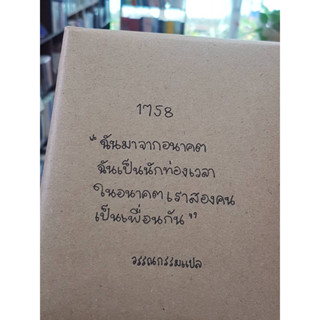 1758
“ฉันมาจากอนาคต
ฉันเป็นนักท่องเวลา
ในอนาคตเราสองคน
เป็นเพื่อนกัน”
วรรณกรรมแปล